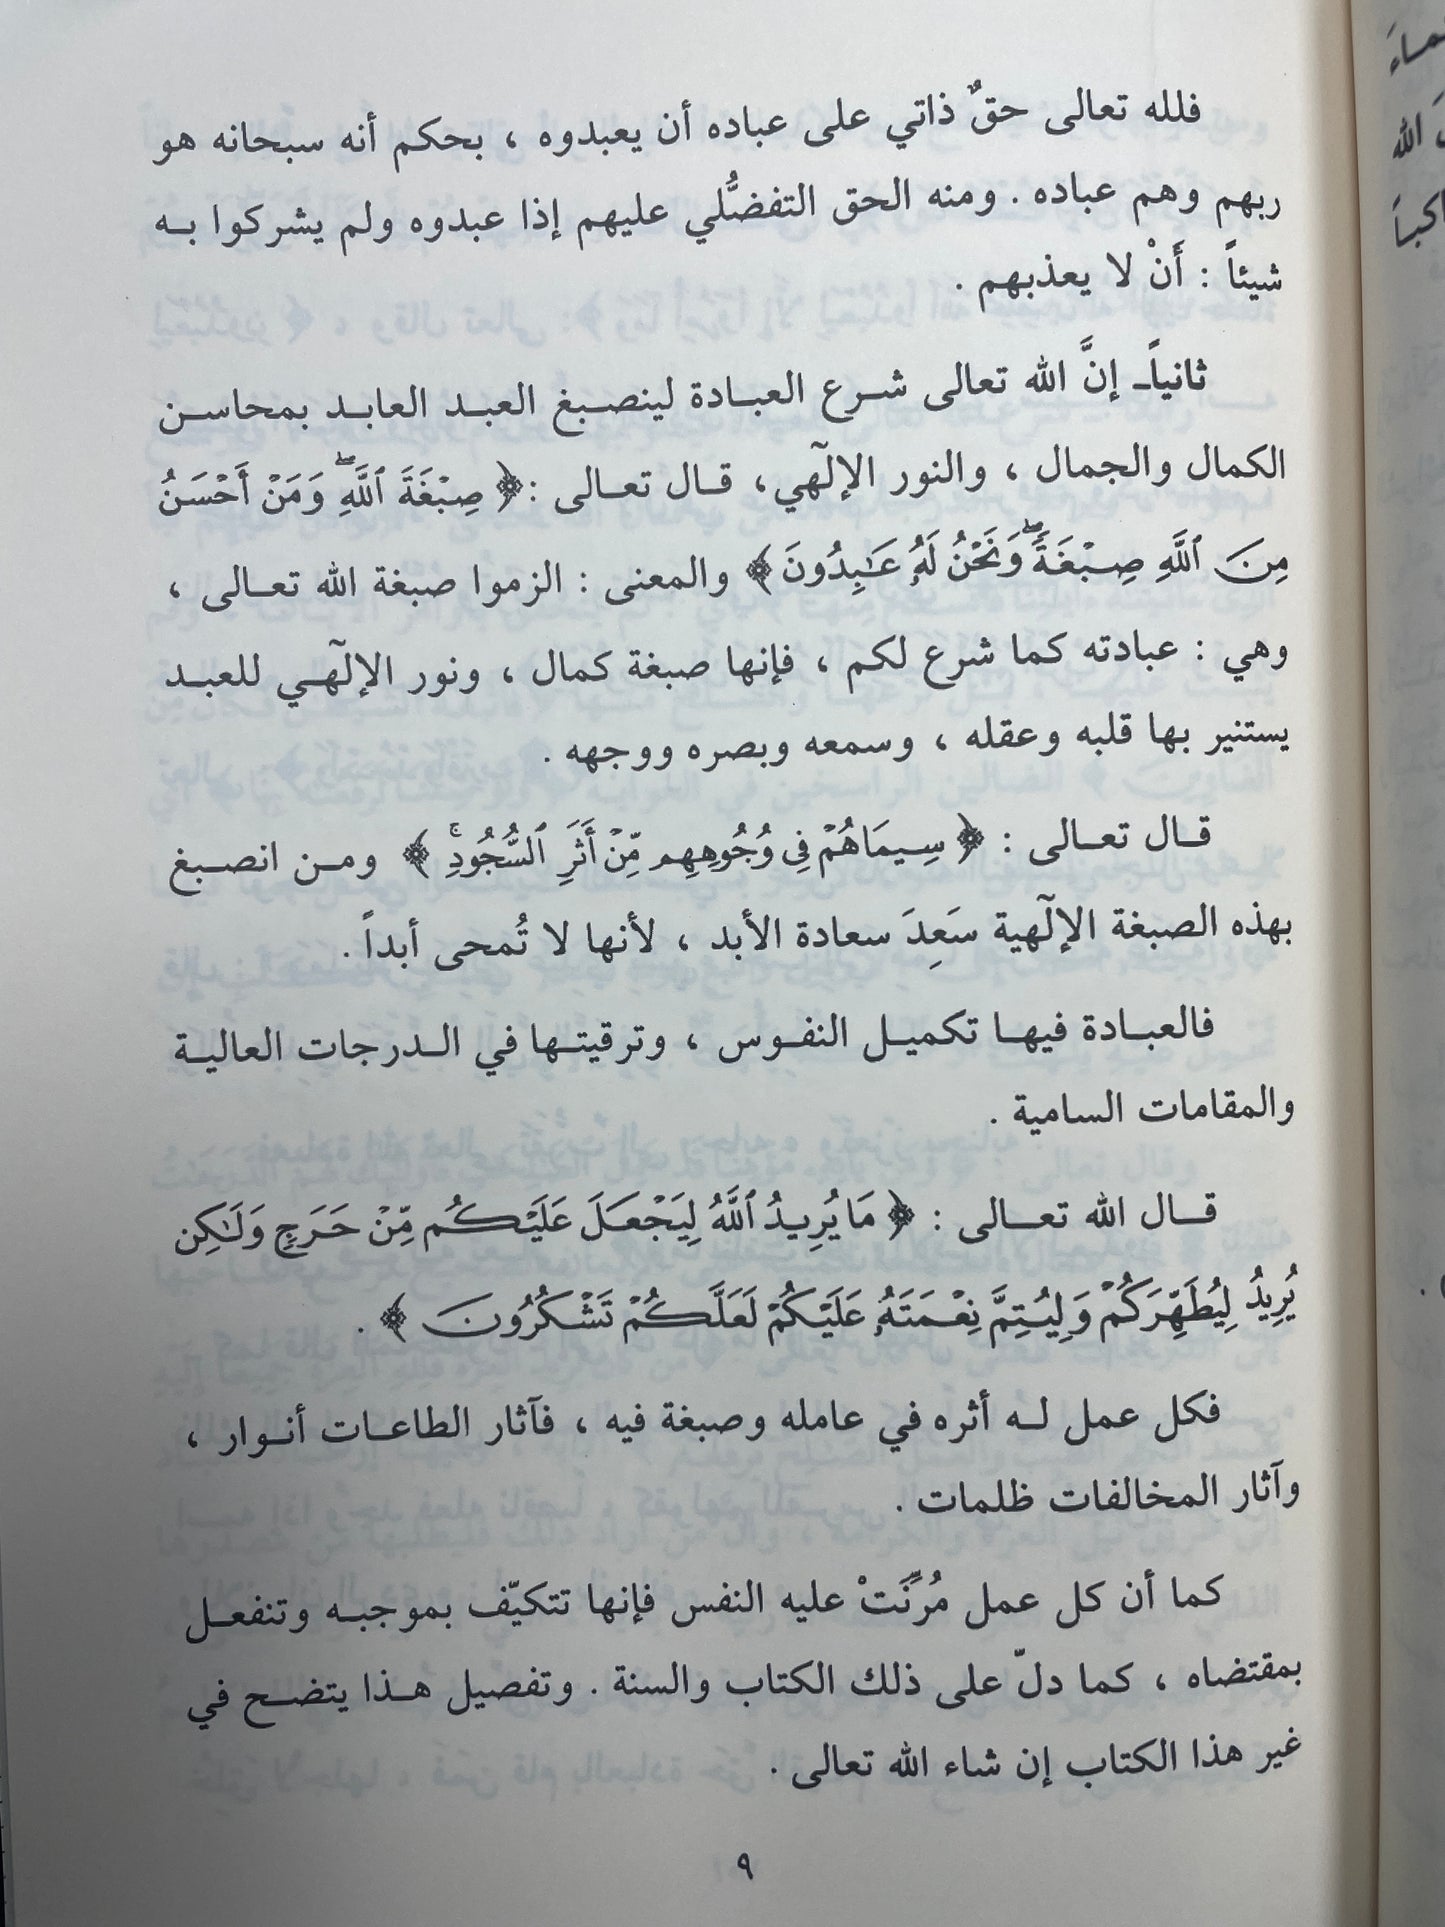 فلله تعالى حقٌ ذاتي على عباده أن يعبدوه ، بحكم أنه سبحانه هو
ربهم وهم عباده . ومنه الحق التفضُّلي عليهم إذا عبدوه ولم يشركوا به
شيئاً : أَنْ لا يعذبهم .
ثانياً ـ إنَّ الله تعالى شرع العبادة لينصبغ العبد العابد بمحاسن
الكمال والجمال ، والنور الإلٓهي، قال تعالى : ﴿ صِبْغَةَ ٱللَّهِ ۖ وَمَنْ أَحْسَنُ
مِنَ ٱللَّهِ صِبْغَةً ۖ وَنَحْنُ لَهُۥ عَـٰبِدُونَ ﴾ والمعنى : الزموا صبغة الله تعالى ،
وهي : عبادته كما شرع لكم ، فإنها صبغة كمال ، ونور الإلٓهي للعبد
يستنير بها قلبه وعقله ، وسمعه وبصره ووجهه .
قال تعالى : ﴿ سِيمَاهُمْ فِي وُجُوهِهِم مِّنْ أَثَرِ ٱلسُّجُودِ ۚ ﴾ ومن انصبغ
بهذه الصبغة الإلٓهية سَعِدَ سعادة الأبد ، لأنها لا تُمحى أبداً .
فالعبادة فيها تكميل النفوس ، وترقيتها في الدرجات العالية
والمقامات السامية .
قال الله تعالى : ﴿ مَا يُرِيدُ ٱللَّهُ لِيَجْعَلَ عَلَيْكُم مِّنْ حَرَجٍ وَلَـٰكِن
يُرِيدُ لِيُطَهِّرَكُمْ وَلِيُتِمَّ نِعْمَتَهُۥ عَلَيْكُمْ لَعَلَّكُمْ تَشْكُرُونَ ﴾ .
فكل عمل له أثره في عامله وصبغة فيه ، فآثار الطاعات أنوار ،
وآثار المخالفات ظلمات .
كما أن كل عمل مُرِّنَتْ عليه النفس فإنها تتكيّف بموجبه وتنفعل
بمقتضاه ، كما دلّ على ذلك الكتاب والسنة . وتفصيل هذا يتضح في
غير هذا الكتاب إن شاء الله تعالى .
٩